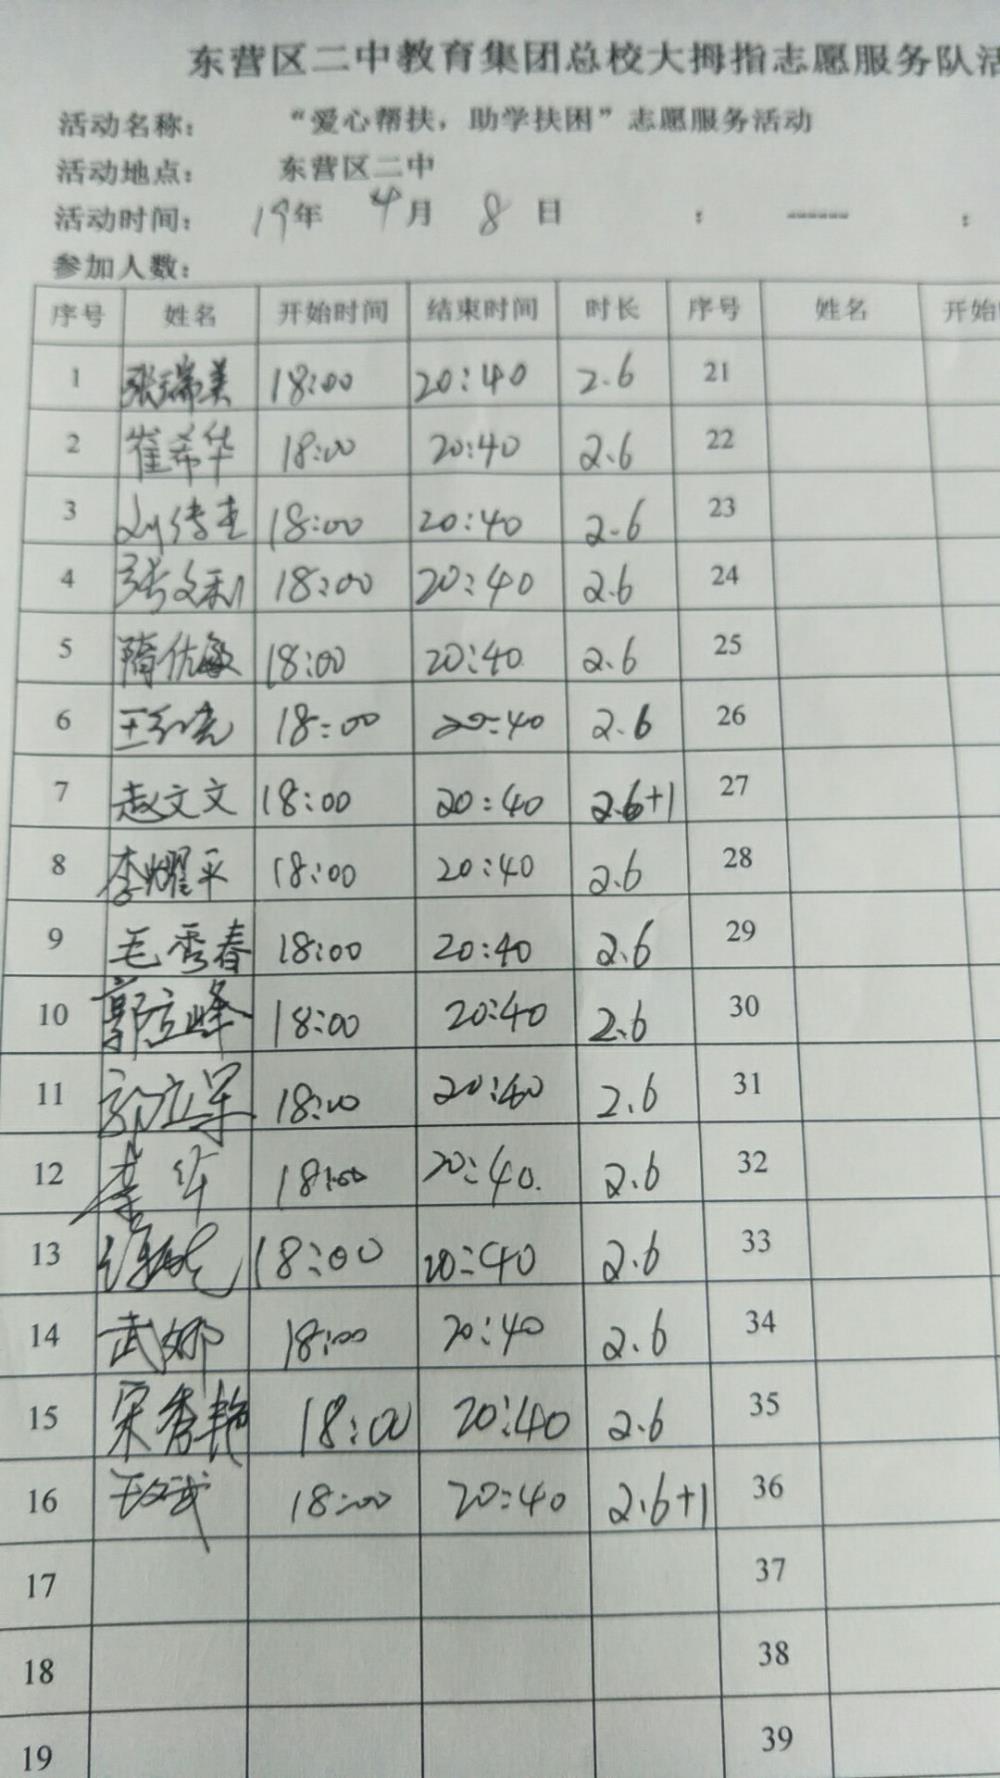 东营区二中教育集团总校大拇指志愿服务队活
活动名称： “爱心帮扶，助学扶困”志愿服务活动
活动地点： 东营区二中
活动时间： 19年 4月 8日 : ------ :
参加人数：
序号 姓名 开始时间 结束时间 时长 序号 姓名 开始
1 张瑞美 18:00 20:40 2.6 21
2 崔希华 18:00 20:40 2.6 22
3 18:00 20:40 2.6 23
4 张文利 18:00 20:40 2.6 24
5 隋优敏 18:00 20:40 2.6 25
6 18:00 20:40 2.6 26
7 赵文文 18:00 20:40 2.6+1 27
8 李耀平 18:00 20:40 2.6 28
9 毛秀春 18:00 20:40 2.6 29
10 郭立峰 18:00 20:40 2.6 30
11 郭立军 18:00 20:40 2.6 31
12 李华 18:00 20:40. 2.6 32
13 18:00 20:40 2.6 33
14 武娜 18:00 20:40 2.6 34
15 宋秀艳 18:00 20:40 2.6 35
16 18:00 20:40 2.6+1 36
17 37
18 38
19 39